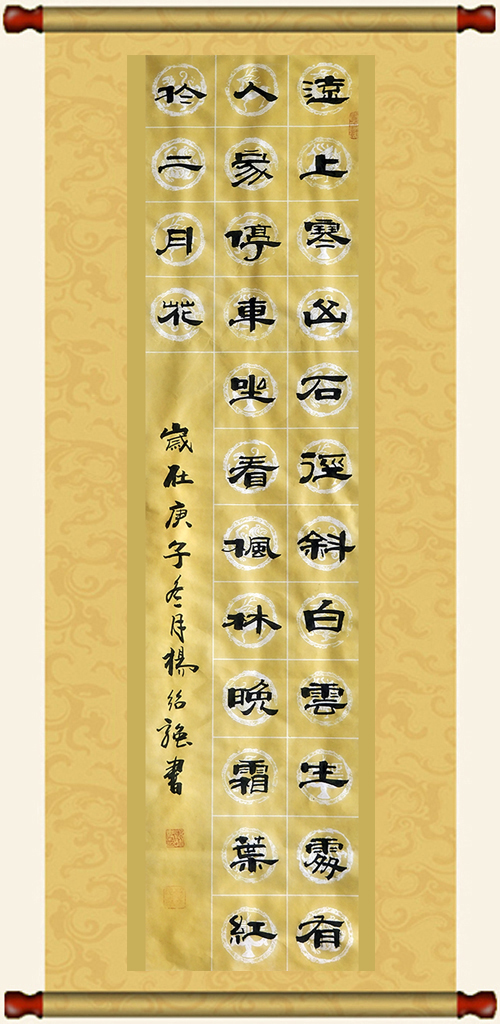 遠上寒山石徑斜白雲生處有
人家停車坐看楓林晚霜葉紅
於二月花
歲在庚子冬月楊紹書